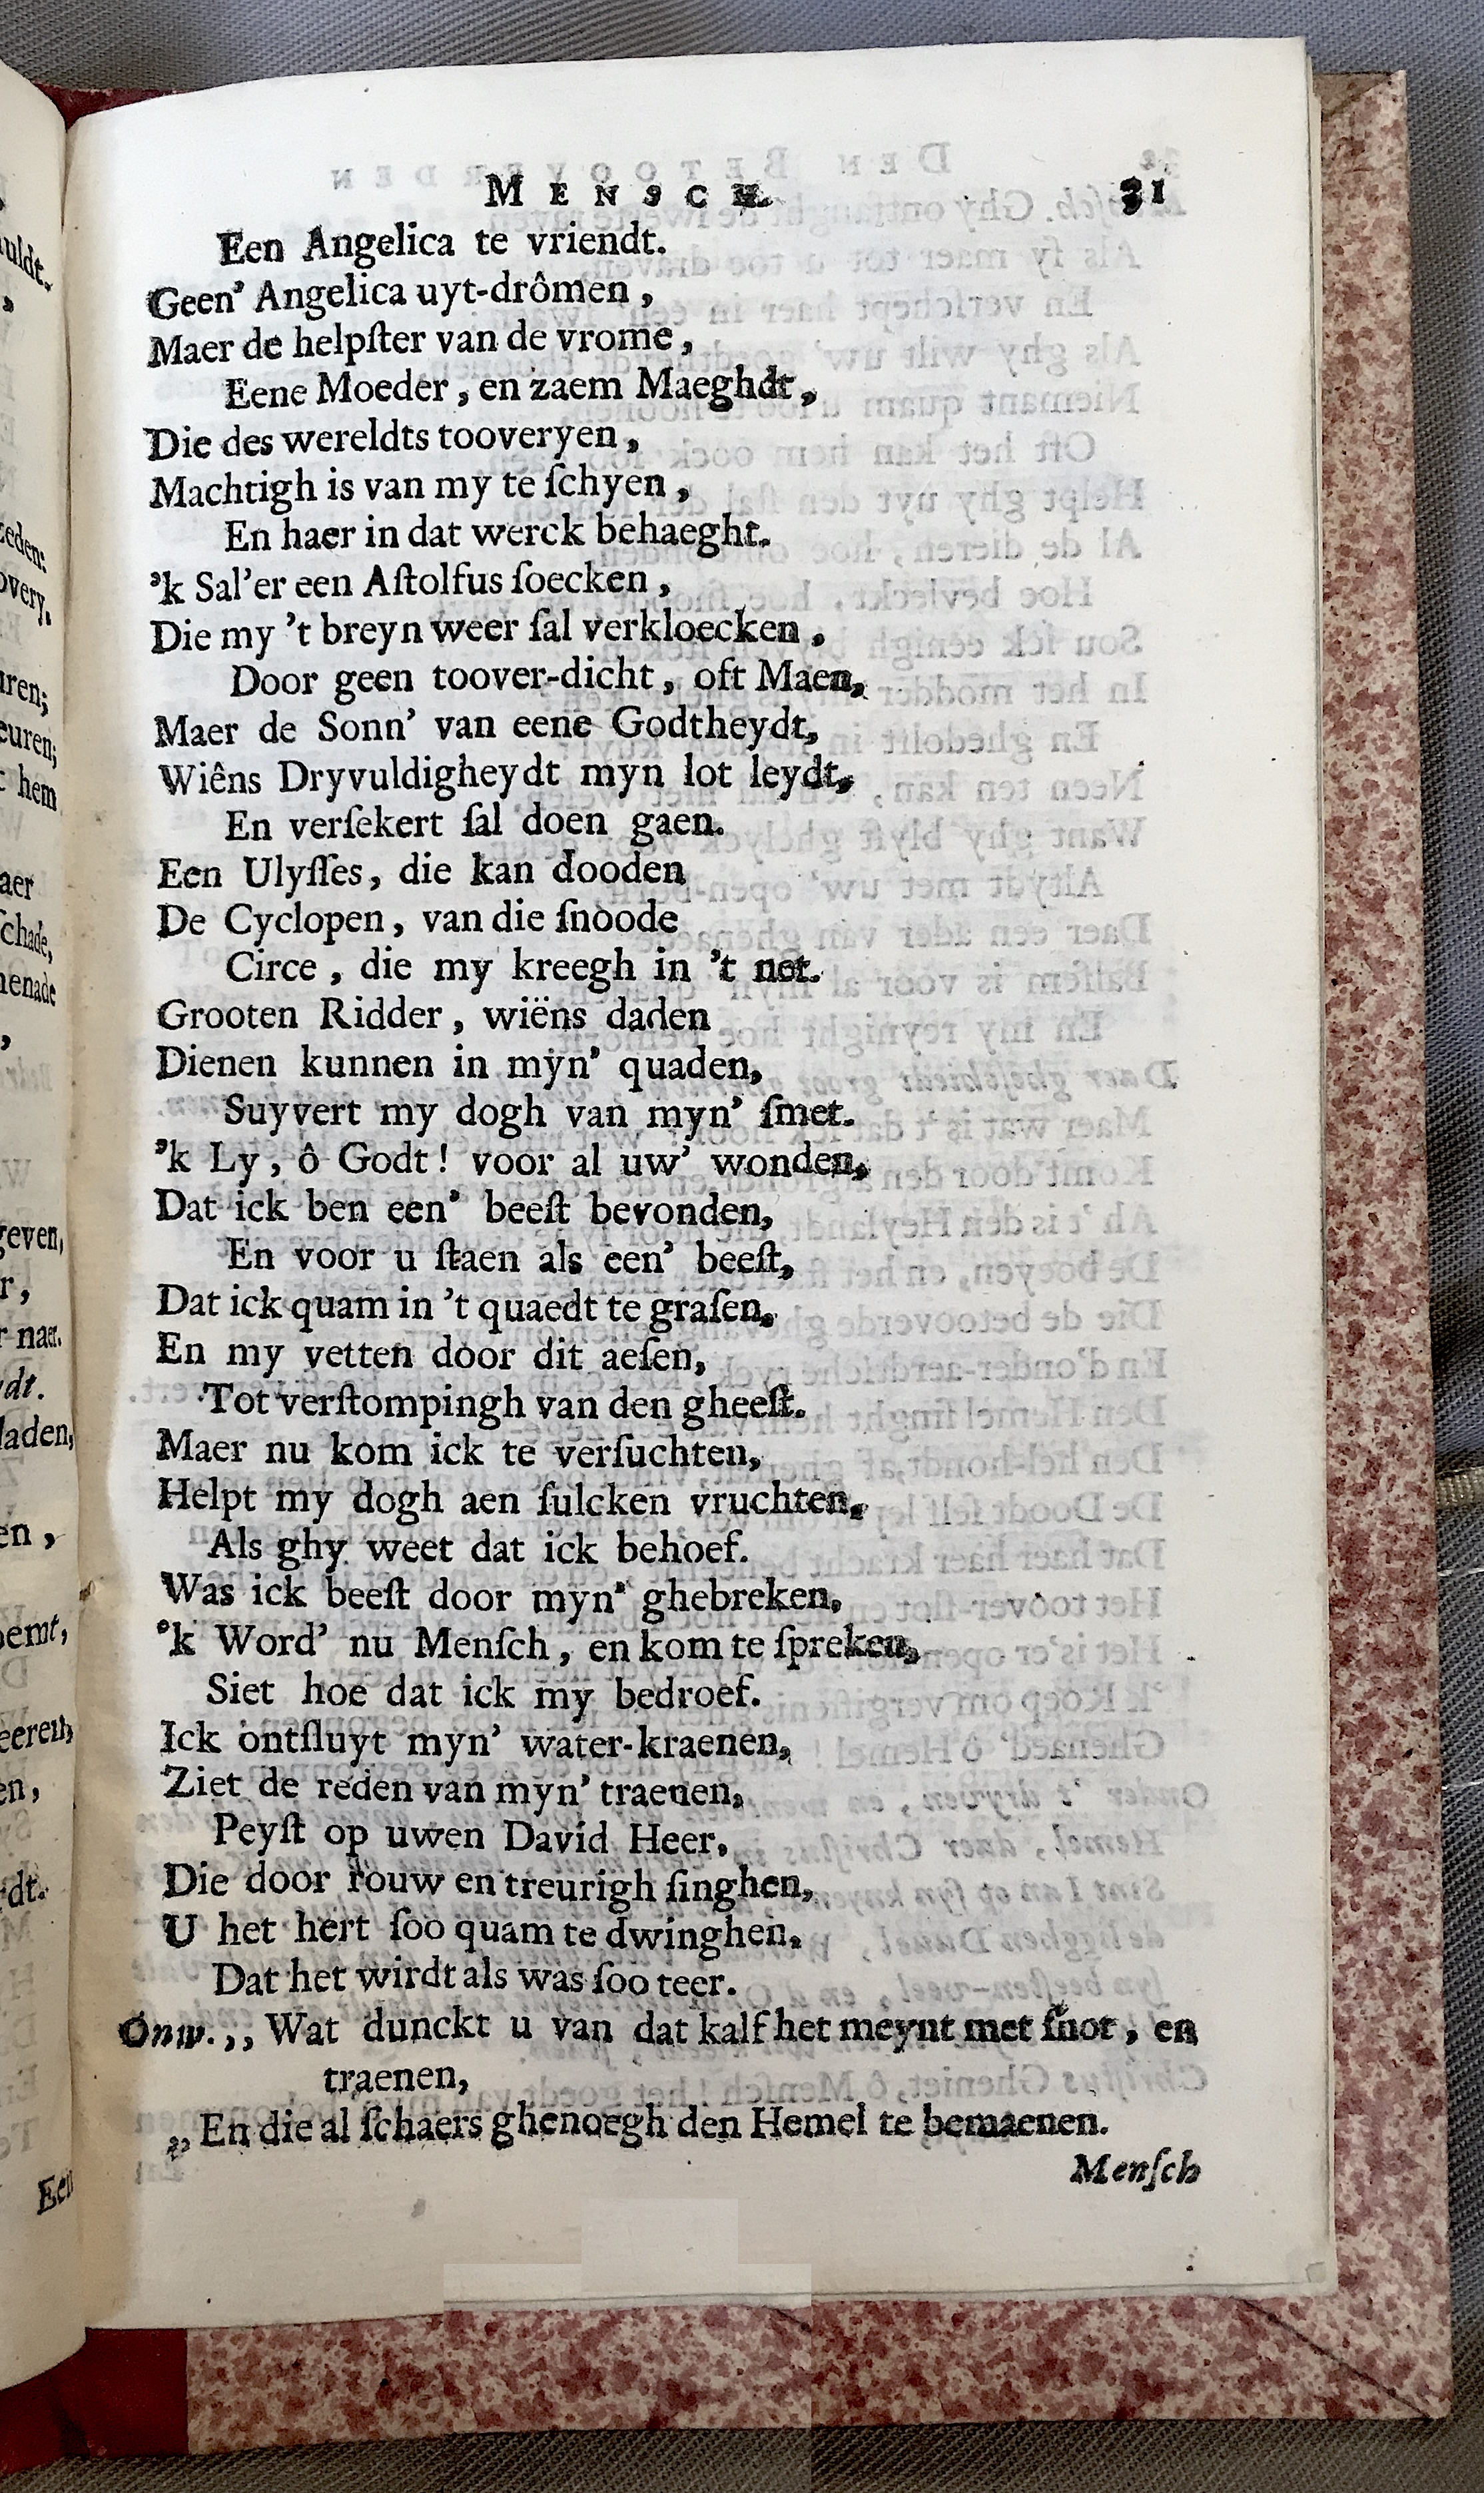 MENSCH. 31
Een Angelica te vriendt.
Geen’ Angelica uyt-drômen,
Maer de helpſter van de vrome,
Eene Moeder, en zaem Maeghdt,
Die des wereldts tooveryen,
Machtigh is van my te ſchyen,
En haer in dat werck behaeght.
’k Sal’er een Aſtolfus ſoecken,
Die my ’t breyn weer ſal verkloecken,
Door geen toover-dicht, oft Maen,
Maer de Sonn’ van eene Godtheydt,
Wiêns Dryvuldigheydt myn lot leydt,
En verſekert ſal doen gaen.
Een Ulyſſes, die kan dooden
De Cyclopen, van die ſnoode
Circe, die my kreegh in ’t net.
Grooten Ridder, wiëns daden
Dienen kunnen in mÿn’ quaden,
Suyvert my dogh van myn’ ſmet.
’k Ly, ô Godt! voor al uw’ wonden,
Dat ick ben een’ beeſt bevonden,
En voor u ſtaen als een’ beeſt,
Dat ick quam in ’t quaedt te graſen,
En my vetten door dit aeſen,
Tot verſtompingh van den gheeſt.
Maer nu kom ick te verſuchten,
Helpt my dogh aen ſulcken vruchten,
Als ghy weet dat ick behoef.
Was ick beeſt door myn’ ghebreken,
’k Word’ nu Menſch, en kom te ſpreken,
Siet hoe dat ick my bedroef.
Ick ontſluyt myn’ water-kraenen,
Ziet de reden van myn’ traenen,
Peyſt op uwen David Heer,
Die door rouw en treurigh ſinghen,
U het hert ſoo quam te dwinghen,
Dat het wirdt als was ſoo teer.
Onw.,, Wat dunckt u van dat kalf het meynt met ſnot, en
traenen,
,, En die al ſchaers ghenoegh den Hemel te bemaenen.
Menſch